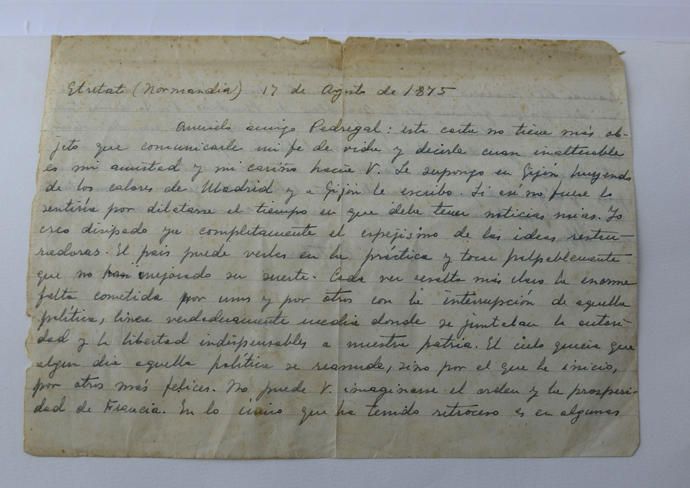 Etretat (Normandia) 17 de Agosto de 1875
Querido amigo Pedregal: esta carta no tiene más ob-
jeto que comunicarle mi fe de vida y decirle cuan inalterable
es mi amistad y mi cariño hacia V. Le supongo en Gijón huyendo
de los calores de Madrid y a Gijón le escribo. Si así no fuese lo
sentiría por dilatarse el tiempo en que debe tener noticias mias. Yo
creo disipado ya completamente el espejismo de las ideas restau-
radoras. El pais puede verlas en la práctica y tocar palpablemente
que no han mejorado su suerte. Cada vez resalta más clara la enorme
falta cometida por unos y por otros con la interrupción de aquella
política, linea verdaderamente media donde se juntaban la autori-
dad y la libertad indispensables a nuestra patria. El cielo quiera que
algun dia aquella política se reanude, sino por el que la inicio,
por otros más felices. No puede V. imaginarse el orden y la prosperi-
dad de Francia. En lo único que ha tenido retroceso es en algunas